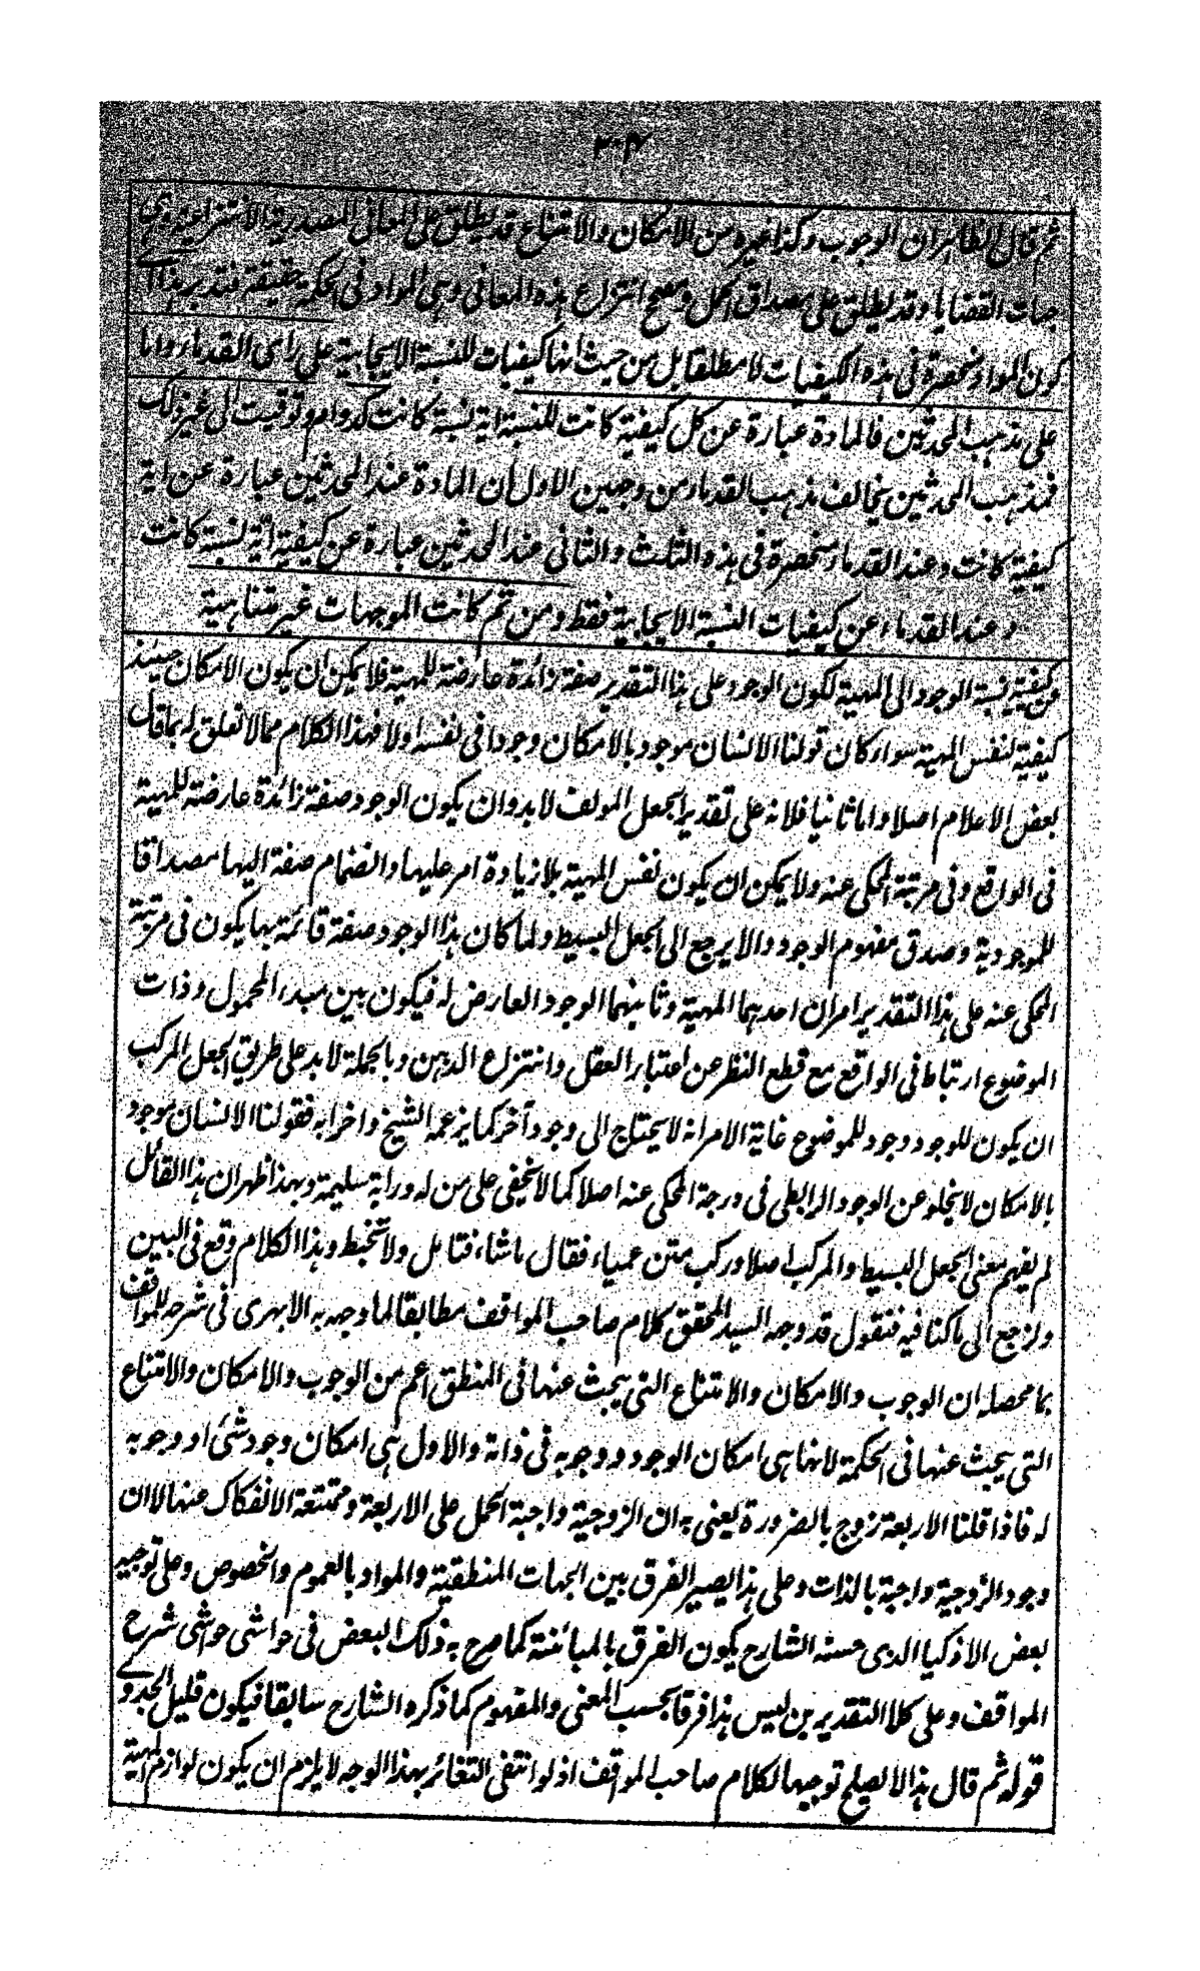 ٢٠٤
ثم قال الظاهر ان الوجوب وكذا غيره من الامكان والامتناع قد يطلق على المعانى المصدرية الانتزاعية وهى
جهات القضايا وقد يطلق على مصداق الحمل ومصحح انتزاع هذه المعانى وهى المواد فى الحكمة حقيقة فتدبر هذا اى
كون المواد منحصرة فى هذه الكيفيات لا مطلقا بل من حيث انها كيفيات للنسبة الايجابية على راى القدماء واما
على مذهب المحدثين فالمادة عبارة عن كل كيفية كانت للنسبة اية نسبة كانت كدوام وتوقيت الى غير ذلك
فمذهب المحدثين يخالف مذهب القدماء من وجهين الاول ان المادة عند المحدثين عبارة عن اية
كيفية كانت وعند القدماء منحصرة فى هذه الثلث والثانى عند المحدثين عبارة عن كيفية اية نسبة كانت
وعند القدماء عن كيفيات النسبة الايجابية فقط ومن ثم كانت الموجهات غير متناهية
عن كيفية نسبة الوجود الى المهية لكون الوجود على هذا التقدير صفة زائدة عارضة للمهية فلا يمكن ان يكون الامكان حينئذ
كيفية لنفس المهية سواء كان قولنا الانسان موجود بالامكان وجودا فى نفسه اولا فهذا الكلام مما لا تعلق له بما قال
بعض الاعلام اصلا واما ثانيا فلانه على تقدير الجعل المولف لابد وان يكون الوجود صفة زائدة عارضة للمهية
فى الواقع وفى مرتبة المحكى عنه ولا يمكن ان يكون نفس المهية بلا زيادة امر عليها وانضمام صفة اليها مصداقا
للموجودية وصدق مفهوم الوجود والا يرجع الى الجعل البسيط ولما كان هذا الوجود صفة قائمة بها يكون فى مرتبة
المحكى عنه على هذا التقدير امران احدهما المهية وثانيهما الوجود العارض له فيكون بين مبدء المحمول وذات
الموضوع ارتباط فى الواقع مع قطع النظر عن اعتبار العقل وانتزاع الذهن وبالجملة لابد على طريق الجعل المركب
ان يكون للوجود وجود للموضوع غاية الامر انه لا يحتاج الى وجود آخر كما يزعمه الشيخ واضرابه فقولنا الانسان موجود
بالامكان لا يخلو عن الوجود الرابطى فى درجة المحكى عنه اصلا كما لا يخفى على من له دراية سليمة وبهذا ظهر ان هذا القائل
لم يفهم معنى الجعل البسيط والمركب اصلا وركب متن عمياء فقال ما شاء فتامل ولا تخبط وهذا الكلام وقع فى البين
ولنرجع الى ما كنا فيه فنقول قد وجه السيد المحقق كلام صاحب المواقف مطابقا لما وجهه به الابهرى فى شرحه للمواقف
بما محصله ان الوجوب والامكان والامتناع التى يبحث عنها فى المنطق اعم من الوجوب والامكان والامتناع
التى يبحث عنها فى الحكمة لانها هى امكان الوجود ووجوبه فى ذاته والاول هى امكان وجود شئ او وجوبه
له فاذا قلنا الاربعة زوج بالضرورة يعنى به ان الزوجية واجبة الحمل على الاربعة وممتنعة الانفكاك عنها لا ان
وجود الزوجية واجبة بالذات وعلى هذا يصير الفرق بين الجهات المنطقية والمواد بالعموم والخصوص وعلى توجيه
بعض الاذكيا الذى حسنه الشارح يكون الفرق بالمبائنة كما صرح به ذلك البعض فى حواشى حواشى شرح
المواقف وعلى كلا التقديرين ليس هذا فرقا بحسب المعنى والمفهوم كما ذكره الشارح سابقا فيكون قليل الجدوى
قوله ثم قال هذا لا يصلح توجيها لكلام صاحب المواقف اذ لو انتفى التغائر بهذا الوجه لا يلزم ان يكون لوازم المهية